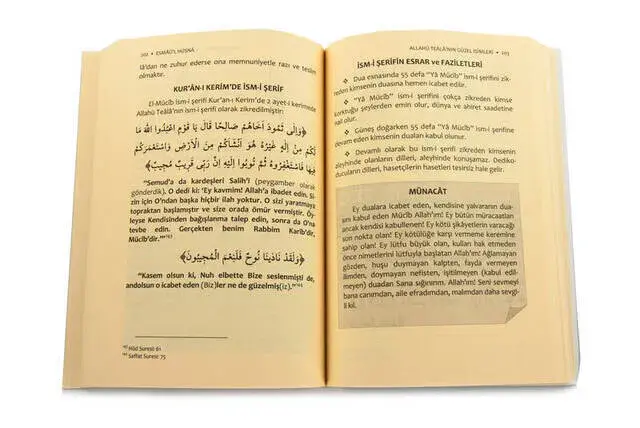 202 • ESMÂÜ'L HÜSNÂ
lâ'dan ne zuhur ederse ona memnuniyetle razı ve teslim
olmaktır.
KUR'ÂN-I KERİM'DE İSM-İ ŞERİF
El-Mücîb ism-i şerifi Kur'an-ı Kerim'de 2 ayet-i kerimede
Allahü Teâlâ'nın ism-i şerifi olarak zikredilmiştir:
﴿وَإِلَى ثَمُودَ أَخَاهُمْ صَالِحًا قَالَ يَا قَوْمِ اعْبُدُوا اللهَ مَا
لَكُمْ مِنْ إِلَهٍ غَيْرُهُ هُوَ أَنْشَأَكُمْ مِنَ الْأَرْضِ وَاسْتَعْمَرَكُمْ
فِيهَا فَاسْتَغْفِرُوهُ ثُمَّ تُوبُوا إِلَيْهِ إِنَّ رَبِّي قَرِيبٌ مُجِيبٌ﴾
"Semud'a da kardeşleri Salih'i (peygamber olarak
gönderdik). O dedi ki: 'Ey kavmim! Allah'a ibadet edin. Si-
zin için O'ndan başka hiçbir ilah yoktur. O sizi yaratmaya
topraktan başlamıştır ve size orada ömür vermiştir. Öy-
leyse Kendisinden bağışlanma talep edin, sonra da O'na
tevbe edin. Gerçekten benim Rabbim Karîb'dir,
Mücîb'dir.'"
﴿وَلَقَدْ نَادَيْنَا نُوحٌ فَلَنِعْمَ الْمُجِيبُونَ﴾
"Kasem olsun ki, Nuh elbette Bize seslenmişti de,
andolsun o icabet eden (Biz)ler ne de güzelmiş(iz)."
Hûd Suresi: 61
Saffat Suresi: 75
ALLAHÜ TEÂLÂ'NIN GÜZEL İSİMLERİ • 203
İSM-İ ŞERİFİN ESRAR ve FAZİLETLERİ
❖ Dua esnasında 55 defa "Yâ Mücîb" ism-i şerifini zik-
reden kimsenin duasına hemen icabet edilir.
❖ "Yâ Mücîb" ism-i şerifini çokça zikreden kimse
korktuğu şeylerden emin olur, dünya ve ahiret saadetine
nail olur.
❖ Güneş doğarken 55 defa "Yâ Mücîb" ism-i şerifine
devam eden kimsenin duaları kabul olur.
❖ Devamlı olarak bu ism-i şerifi zikreden kimsenin
aleyhinde olanların dilleri, aleyhinde konuşamaz. Dediko-
ducuların dilleri, hasetçilerin hasetleri tesirsiz hale gelir.
MÜNACÂT
Ey dualara icabet eden, kendisine yalvaranın dua-
sını kabul eden Mücîb Allah'ım! Ey bütün müracaatları
ancak kendisi kabullenen! Ey kötü şikâyetlerin varacağı
son nokta olan! Ey kötülüğe karşı vermeme keremine
sahip olan! Ey lütfu büyük olan, kulları hak etmeden
önce nimetlerini lütfuyla başlatan Allah'ım! Ağlamayan
gözden, huşu duymayan kalpten, fayda vermeyen
ilimden, doymayan nefisten, işitilmeyen (kabul edil-
meyen) duadan Sana sığınırım. Allah'ım! Seni sevmeyi
bana canımdan, aile efradımdan, malımdan daha sevgi-
li kıl.